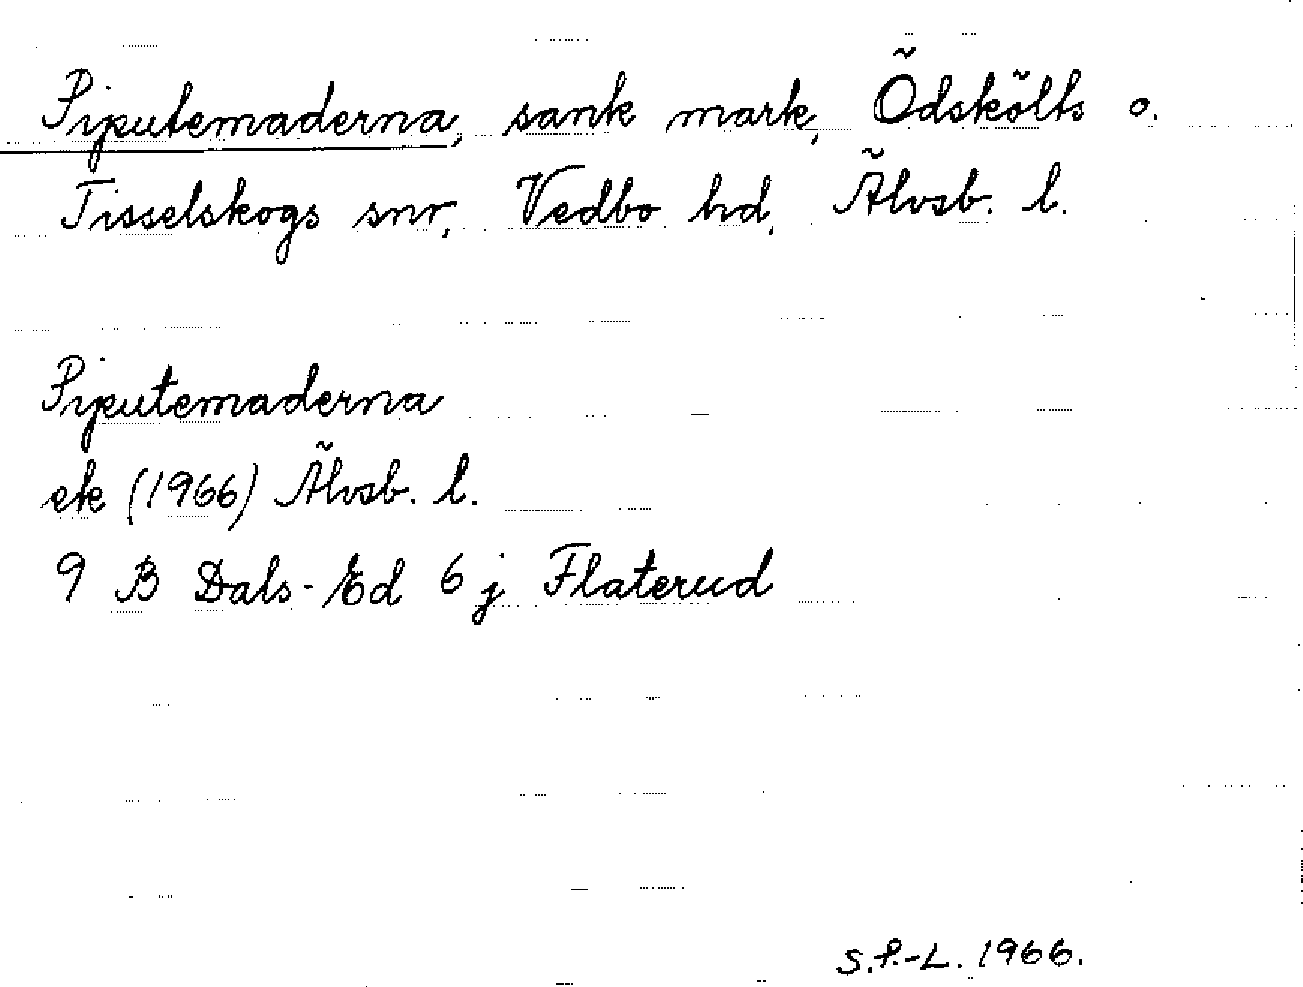 Piputemaderna, sank mark, Ödskölts o.
Tisselskogs snr, Vedbo hd, Älvsb. l.
Piputemaderna
ek (1966) Älvsb. l.
9 B Dals-Ed 6 j Flaterud
S.P.-L. 1966.